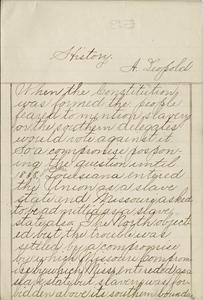 History.
A. Leopold
When the Constitution
was formed the people
feared to mention slavery
or the southern delegates
would vote against it.
So a compromise pospon
ing the question until
1808. Louisiana entered
the Union as a slave
state and Missoury asked
to be admitted as a slave
state also. The North object
ed but the trouble was
settled by a compromise
by which
by which Miss. entered as a
slave state but slavery was for
bidden above its southern boundary